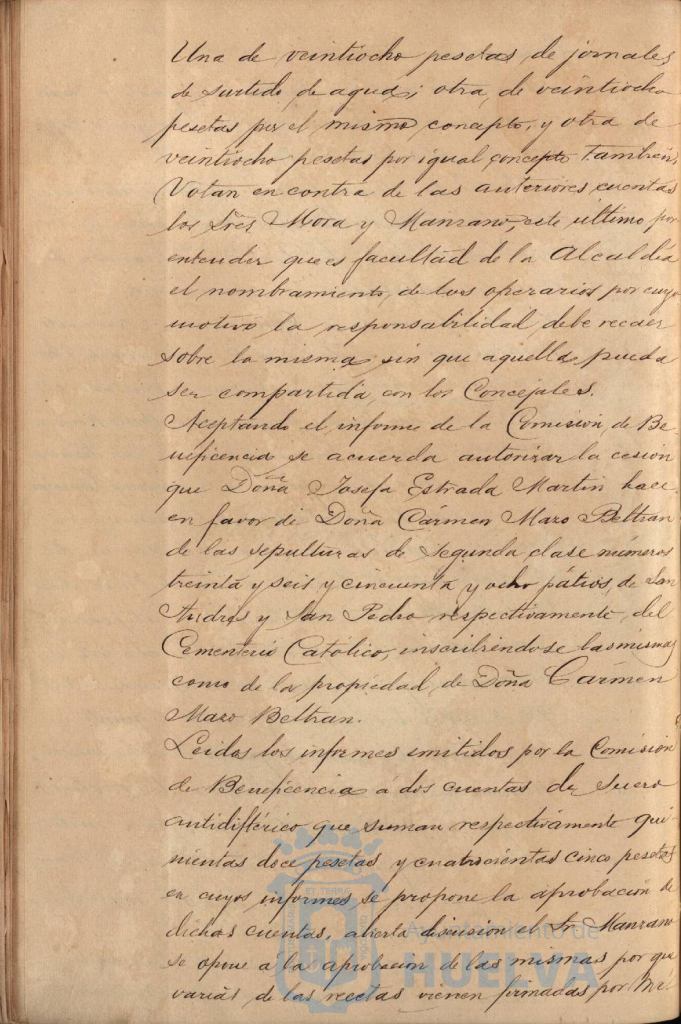 Una de veintiocho pesetas de jornales
de surtido de agua; otra, de veintiocho
pesetas por el mismo concepto, y otra de
veintiocho pesetas por igual concepto tambien.
Votan en contra de las anteriores cuentas
los Sres Mora y Manzano, este último por
entender que es facultad de la Alcaldia
el nombramiento de los operarios por cuyo
motivo la responsabilidad debe recaer
sobre la misma sin que aquella pueda
ser compartida con los Concejales.
Aceptando el informe de la Comisión de Be-
neficencia se acuerda autorizar la cesión
que Doña Josefa Estrada Martin hace
en favor de Doña Cármen Mazo Beltran
de las sepulturas de segunda clase números
treinta y seis y cincuenta y ocho pátios de San
Andres y San Pedro respectivamente, del
Cementerio Católico, inscribiendose las mismas
como de la propiedad de Doña Cármen
Mazo Beltran.
Leidos los informes emitidos por la Comisión
de Beneficencia á dos cuentas de suero
antidiftérico que suman respectivamente qui-
nientas doce pesetas y cuatrocientas cinco pesetas
en cuyos informes se propone la aprobacion de
dichas cuentas, abierta discusion el Sr. Manzano
se opone á la aprobacion de las mismas por que
varias de las recetas vienen firmadas por Mé-
Ayuntamiento de
HUELVA